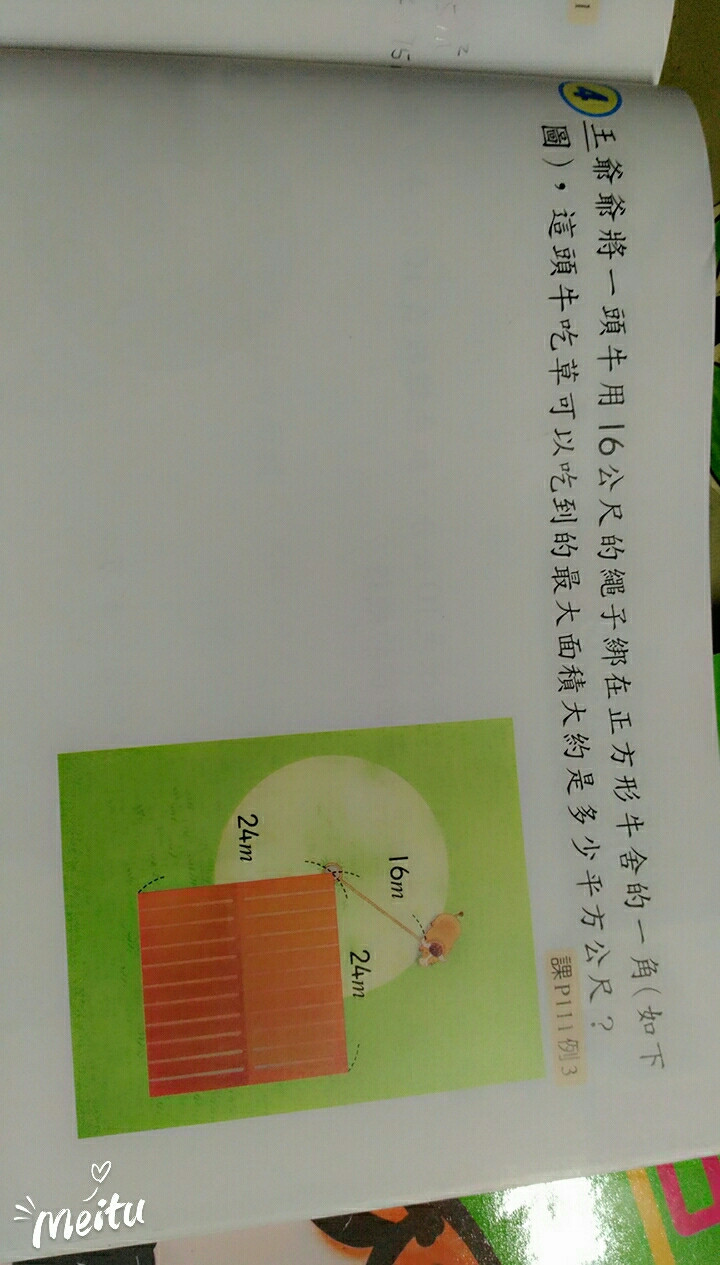 4
王爺爺將一頭牛用16公尺的繩子綁在正方形牛舍的一角(如下
圖),這頭牛吃草可以吃到的最大面積大約是多少平方公尺?
課P111例3
16m
24m
24m
Meitu